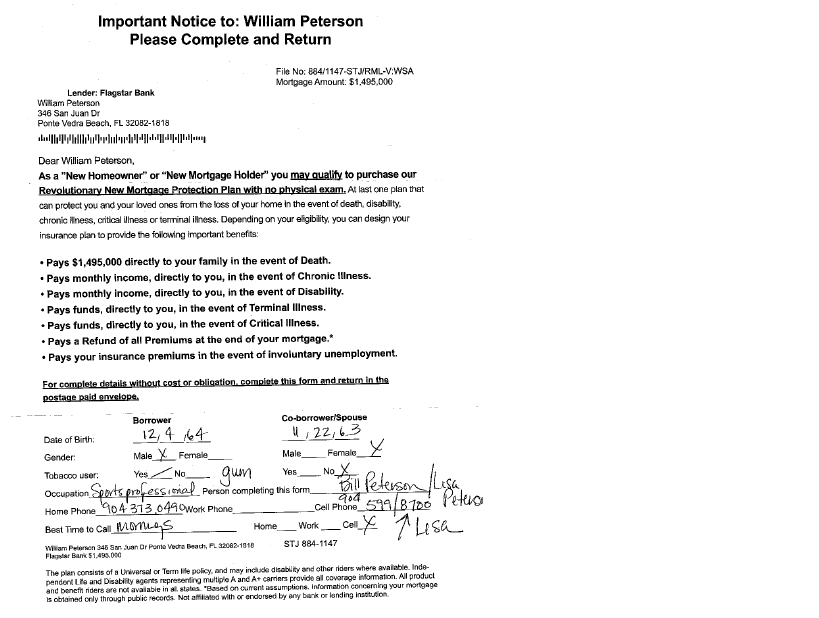 Important Notice to: William Peterson
Please Complete and Return
File No: 884/1147-STJ/RML-V:WSA
Mortgage Amount: $1,495,000
Lender: Flagstar Bank
William Peterson
346 San Juan Dr
Ponte Vedra Beach, FL 32082-1818
Dear William Peterson,
As a "New Homeowner" or "New Mortgage Holder" you may qualify to purchase our
Revolutionary New Mortgage Protection Plan with no physical exam. At last one plan that
can protect you and your loved ones from the loss of your home in the event of death, disability,
chronic illness, critical illness or terminal illness. Depending on your eligibility, you can design your
insurance plan to provide the following important benefits:
• Pays $1,495,000 directly to your family in the event of Death.
• Pays monthly income, directly to you, in the event of Chronic Illness.
• Pays monthly income, directly to you, in the event of Disability.
• Pays funds, directly to you, in the event of Terminal Illness.
• Pays funds, directly to you, in the event of Critical Illness.
• Pays a Refund of all Premiums at the end of your mortgage.*
• Pays your insurance premiums in the event of involuntary unemployment.
For complete details without cost or obligation, complete this form and return in the
postage paid envelope.
Borrower Co-borrower/Spouse
Date of Birth: 12, 4, 64 11, 22, 63
Gender: Male X Female Male Female X
Tobacco user: Yes / No gum Yes No X
Occupation Sports professional Person completing this form Bill Peterson/Lisa Peterson
Home Phone 904 373 0490 Work Phone Cell Phone 904 599/8700
Best Time to Call Mornings Home Work Cell X ↑ Lisa
William Peterson 346 San Juan Dr Ponte Vedra Beach, FL 32082-1818 STJ 884-1147
Flagstar Bank $1,495,000
The plan consists of a Universal or Term life policy, and may include disability and other riders where available. Inde-
pendent Life and Disability agents representing multiple A and A+ carriers provide all coverage information. All product
and benefit riders are not available in all states. *Based on current assumptions. Information concerning your mortgage
is obtained only through public records. Not affiliated with or endorsed by any bank or lending institution.